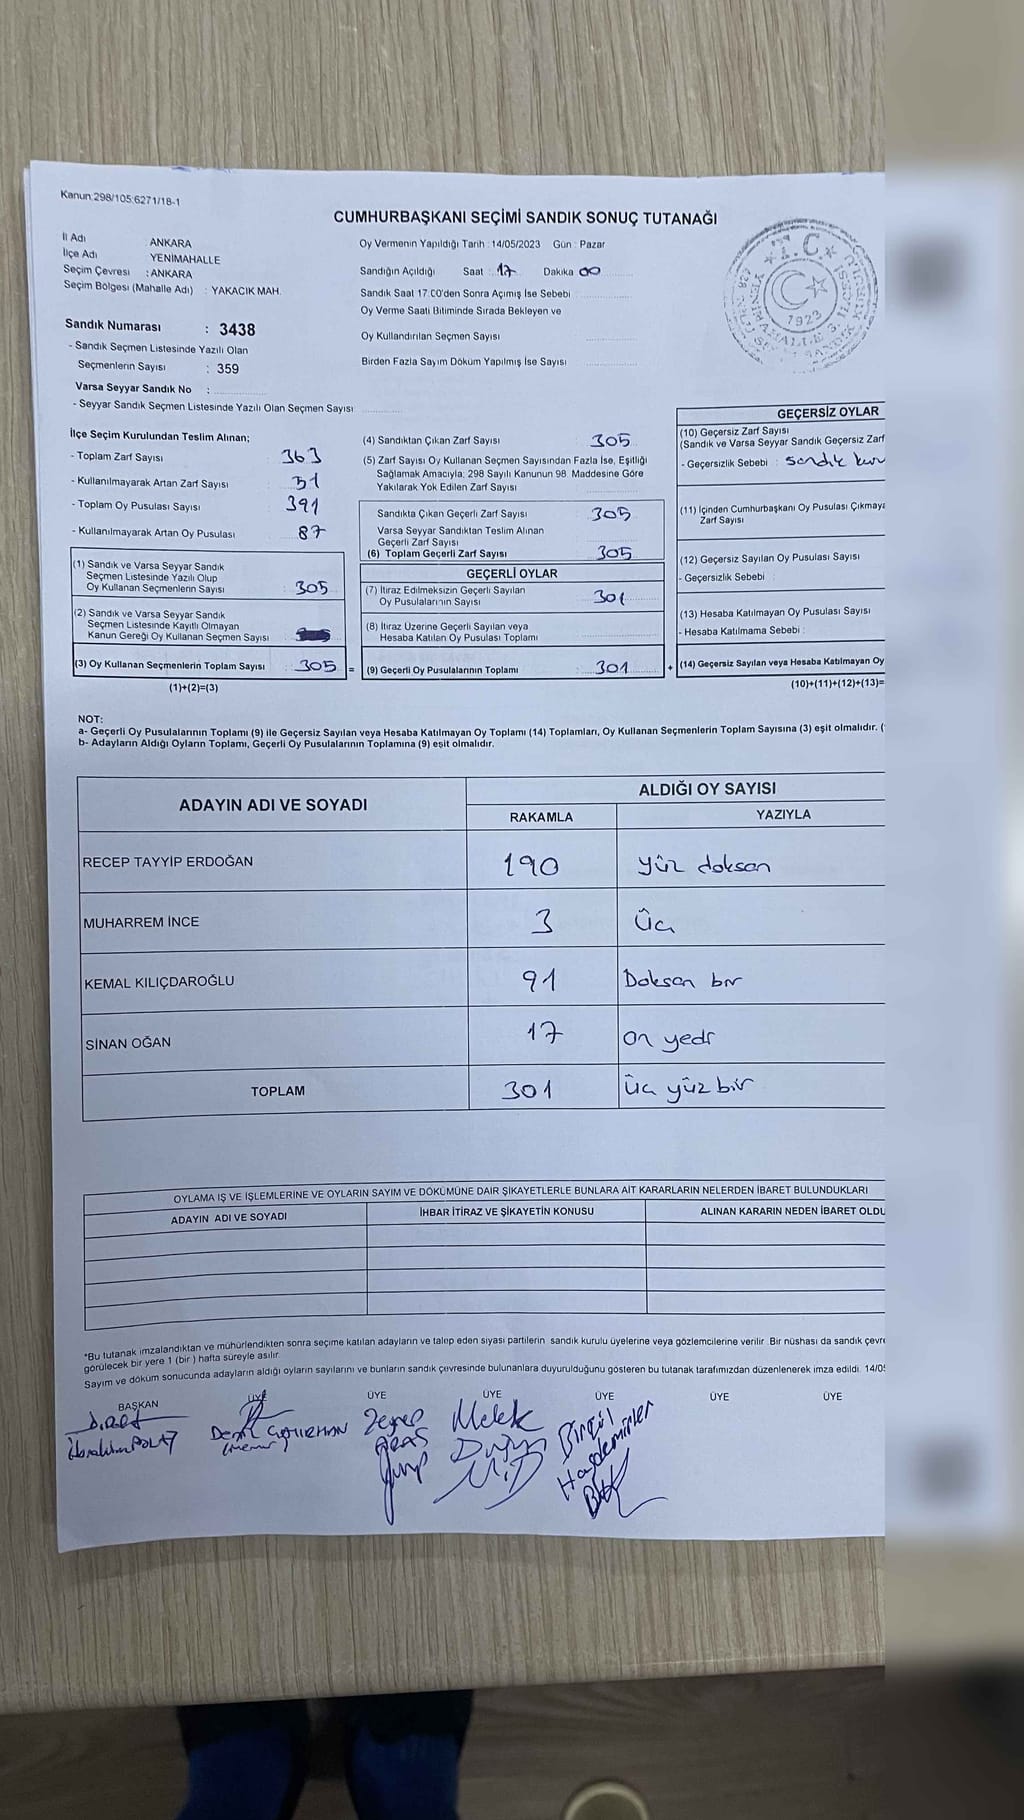 Kanun:298/105;6271/18-1
CUMHURBAŞKANI SEÇİMİ SANDIK SONUÇ TUTANAĞI
İl Adı ANKARA
İlçe Adı YENİMAHALLE
Seçim Çevresi : ANKARA
Seçim Bölgesi (Mahalle Adı) : YAKACIK MAH.
Sandık Numarası : 3438
- Sandık Seçmen Listesinde Yazılı Olan
Seçmenlerin Sayısı : 359
Varsa Seyyar Sandık No :
- Seyyar Sandık Seçmen Listesinde Yazılı Olan Seçmen Sayısı
Oy Vermenin Yapıldığı Tarih : 14/05/2023 Gün : Pazar
Sandığın Açıldığı Saat : 17 Dakika 00
Sandık Saat 17:00'den Sonra Açımış İse Sebebi
Oy Verme Saati Bitiminde Sırada Bekleyen ve
Oy Kullandırılan Seçmen Sayısı
Birden Fazla Sayım Döküm Yapılmış İse Sayısı
T.C.
1923
İlçe Seçim Kurulundan Teslim Alınan;
- Toplam Zarf Sayısı : 363
- Kullanılmayarak Artan Zarf Sayısı : 51
- Toplam Oy Pusulası Sayısı : 391
- Kullanılmayarak Artan Oy Pusulası : 87
(1) Sandık ve Varsa Seyyar Sandık
Seçmen Listesinde Yazılı Olup
Oy Kullanan Seçmenlerin Sayısı : 305
(2) Sandık ve Varsa Seyyar Sandık
Seçmen Listesinde Kayıtlı Olmayan
Kanun Gereği Oy Kullanan Seçmen Sayısı
(3) Oy Kullanan Seçmenlerin Toplam Sayısı : 305 =
(1)+(2)=(3)
(4) Sandıktan Çıkan Zarf Sayısı : 305
(5) Zarf Sayısı Oy Kullanan Seçmen Sayısından Fazla İse, Eşitliği
Sağlamak Amacıyla, 298 Sayılı Kanunun 98. Maddesine Göre
Yakılarak Yok Edilen Zarf Sayısı
Sandıkta Çıkan Geçerli Zarf Sayısı : 305
Varsa Seyyar Sandıktan Teslim Alınan
Geçerli Zarf Sayısı
(6) Toplam Geçerli Zarf Sayısı : 305
GEÇERLİ OYLAR
(7) İtiraz Edilmeksizin Geçerli Sayılan
Oy Pusulalarının Sayısı : 301
(8) İtiraz Üzerine Geçerli Sayılan veya
Hesaba Katılan Oy Pusulası Toplamı
(9) Geçerli Oy Pusulalarının Toplamı : 301 +
GEÇERSİZ OYLAR
(10) Geçersiz Zarf Sayısı
(Sandık ve Varsa Seyyar Sandık Geçersiz Zarf
- Geçersizlik Sebebi : sandık kur
(11) İçinden Cumhurbaşkanı Oy Pusulası Çıkmaya
Zarf Sayısı
(12) Geçersiz Sayılan Oy Pusulası Sayısı
- Geçersizlik Sebebi :
(13) Hesaba Katılmayan Oy Pusulası Sayısı
- Hesaba Katılmama Sebebi :
(14) Geçersiz Sayılan veya Hesaba Katılmayan Oy
(10)+(11)+(12)+(13)=
NOT:
a- Geçerli Oy Pusulalarının Toplamı (9) ile Geçersiz Sayılan veya Hesaba Katılmayan Oy Toplamı (14) Toplamları, Oy Kullanan Seçmenlerin Toplam Sayısına (3) eşit olmalıdır. (
b- Adayların Aldığı Oyların Toplamı, Geçerli Oy Pusulalarının Toplamına (9) eşit olmalıdır.
ADAYIN ADI VE SOYADI
ALDIĞI OY SAYISI
RAKAMLA YAZIYLA
RECEP TAYYİP ERDOĞAN 190 yüz doksan
MUHARREM İNCE 3 üç
KEMAL KILIÇDAROĞLU 91 Doksan bir
SİNAN OĞAN 17 on yedi
TOPLAM 301 üç yüz bir
OYLAMA İŞ VE İŞLEMLERİNE VE OYLARIN SAYIM VE DÖKÜMÜNE DAİR ŞİKAYETLERLE BUNLARA AİT KARARLARIN NELERDEN İBARET BULUNDUKLARI
ADAYIN ADI VE SOYADI İHBAR İTİRAZ VE ŞİKAYETİN KONUSU ALINAN KARARIN NEDEN İBARET OLDU
*Bu tutanak imzalandıktan ve mühürlendikten sonra seçime katılan adayların ve talep eden siyasi partilerin sandık kurulu üyelerine veya gözlemcilerine verilir. Bir nüshası da sandık çevre
görülecek bir yere 1 (bir) hafta süreyle asılır.
Sayım ve döküm sonucunda adayların aldığı oyların sayılarını ve bunların sandık çevresinde bulunanlara duyurulduğunu gösteren bu tutanak tarafımızdan düzenlenerek imza edildi. 14/05
BAŞKAN ÜYE ÜYE ÜYE ÜYE ÜYE ÜYE
İbrahim POLAT
Zeynep
ARAS
Melek
Birgül